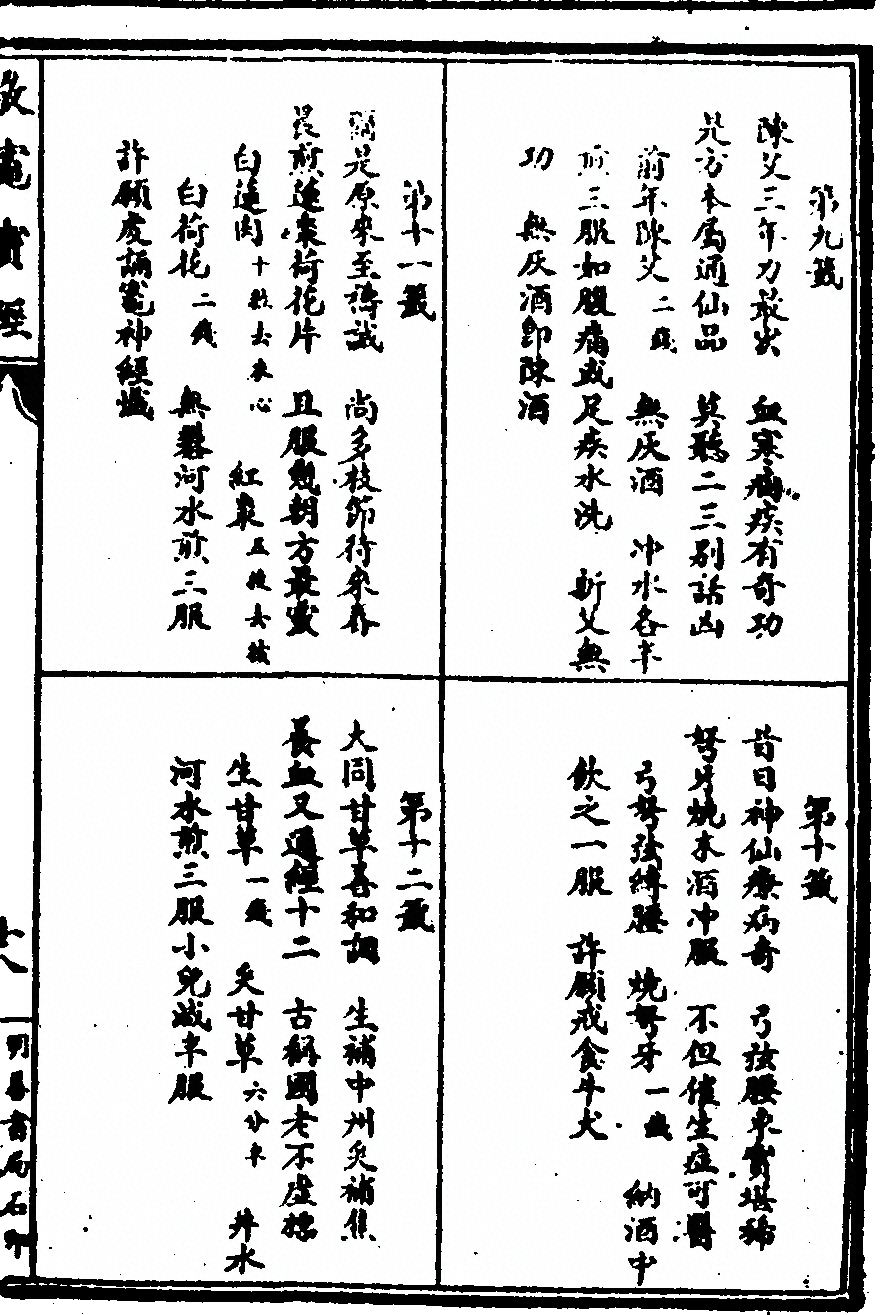 第九籤
陳艾三年力最出 血寒痛疾有奇功
是方本屬通仙品 莫聽二三別話凶
前年陳艾二錢 無灰酒 冲水各半
煎三服如腹痛或足疾水洗 新艾無
功 無灰酒即陳酒
第十籤
昔日神仙療病奇 弓弦腰束實堪稀
弩牙燒末酒冲服 不但催生症可醫
弓弩弦縛腰 燒弩牙一錢 納酒中
飲之一服 許願戒食牛犬
第十一籤
是原來至禱誠 尚多枝節待來春
畏煎蓮棗荷花片 且服幾朝方最靈
白蓮肉十粒去衣心 紅棗五枚去核
白荷花二錢 無礬河水煎三服
許願虔誦竈神經懺
第十二籤
大同甘草善和調 生補中州炙補焦
養血又通經十二 古稱國老不虛標
生甘草一錢 炙甘草六分半 井水
河水煎三服小兒減半服
敬竈寶經
十八
明善書局石印